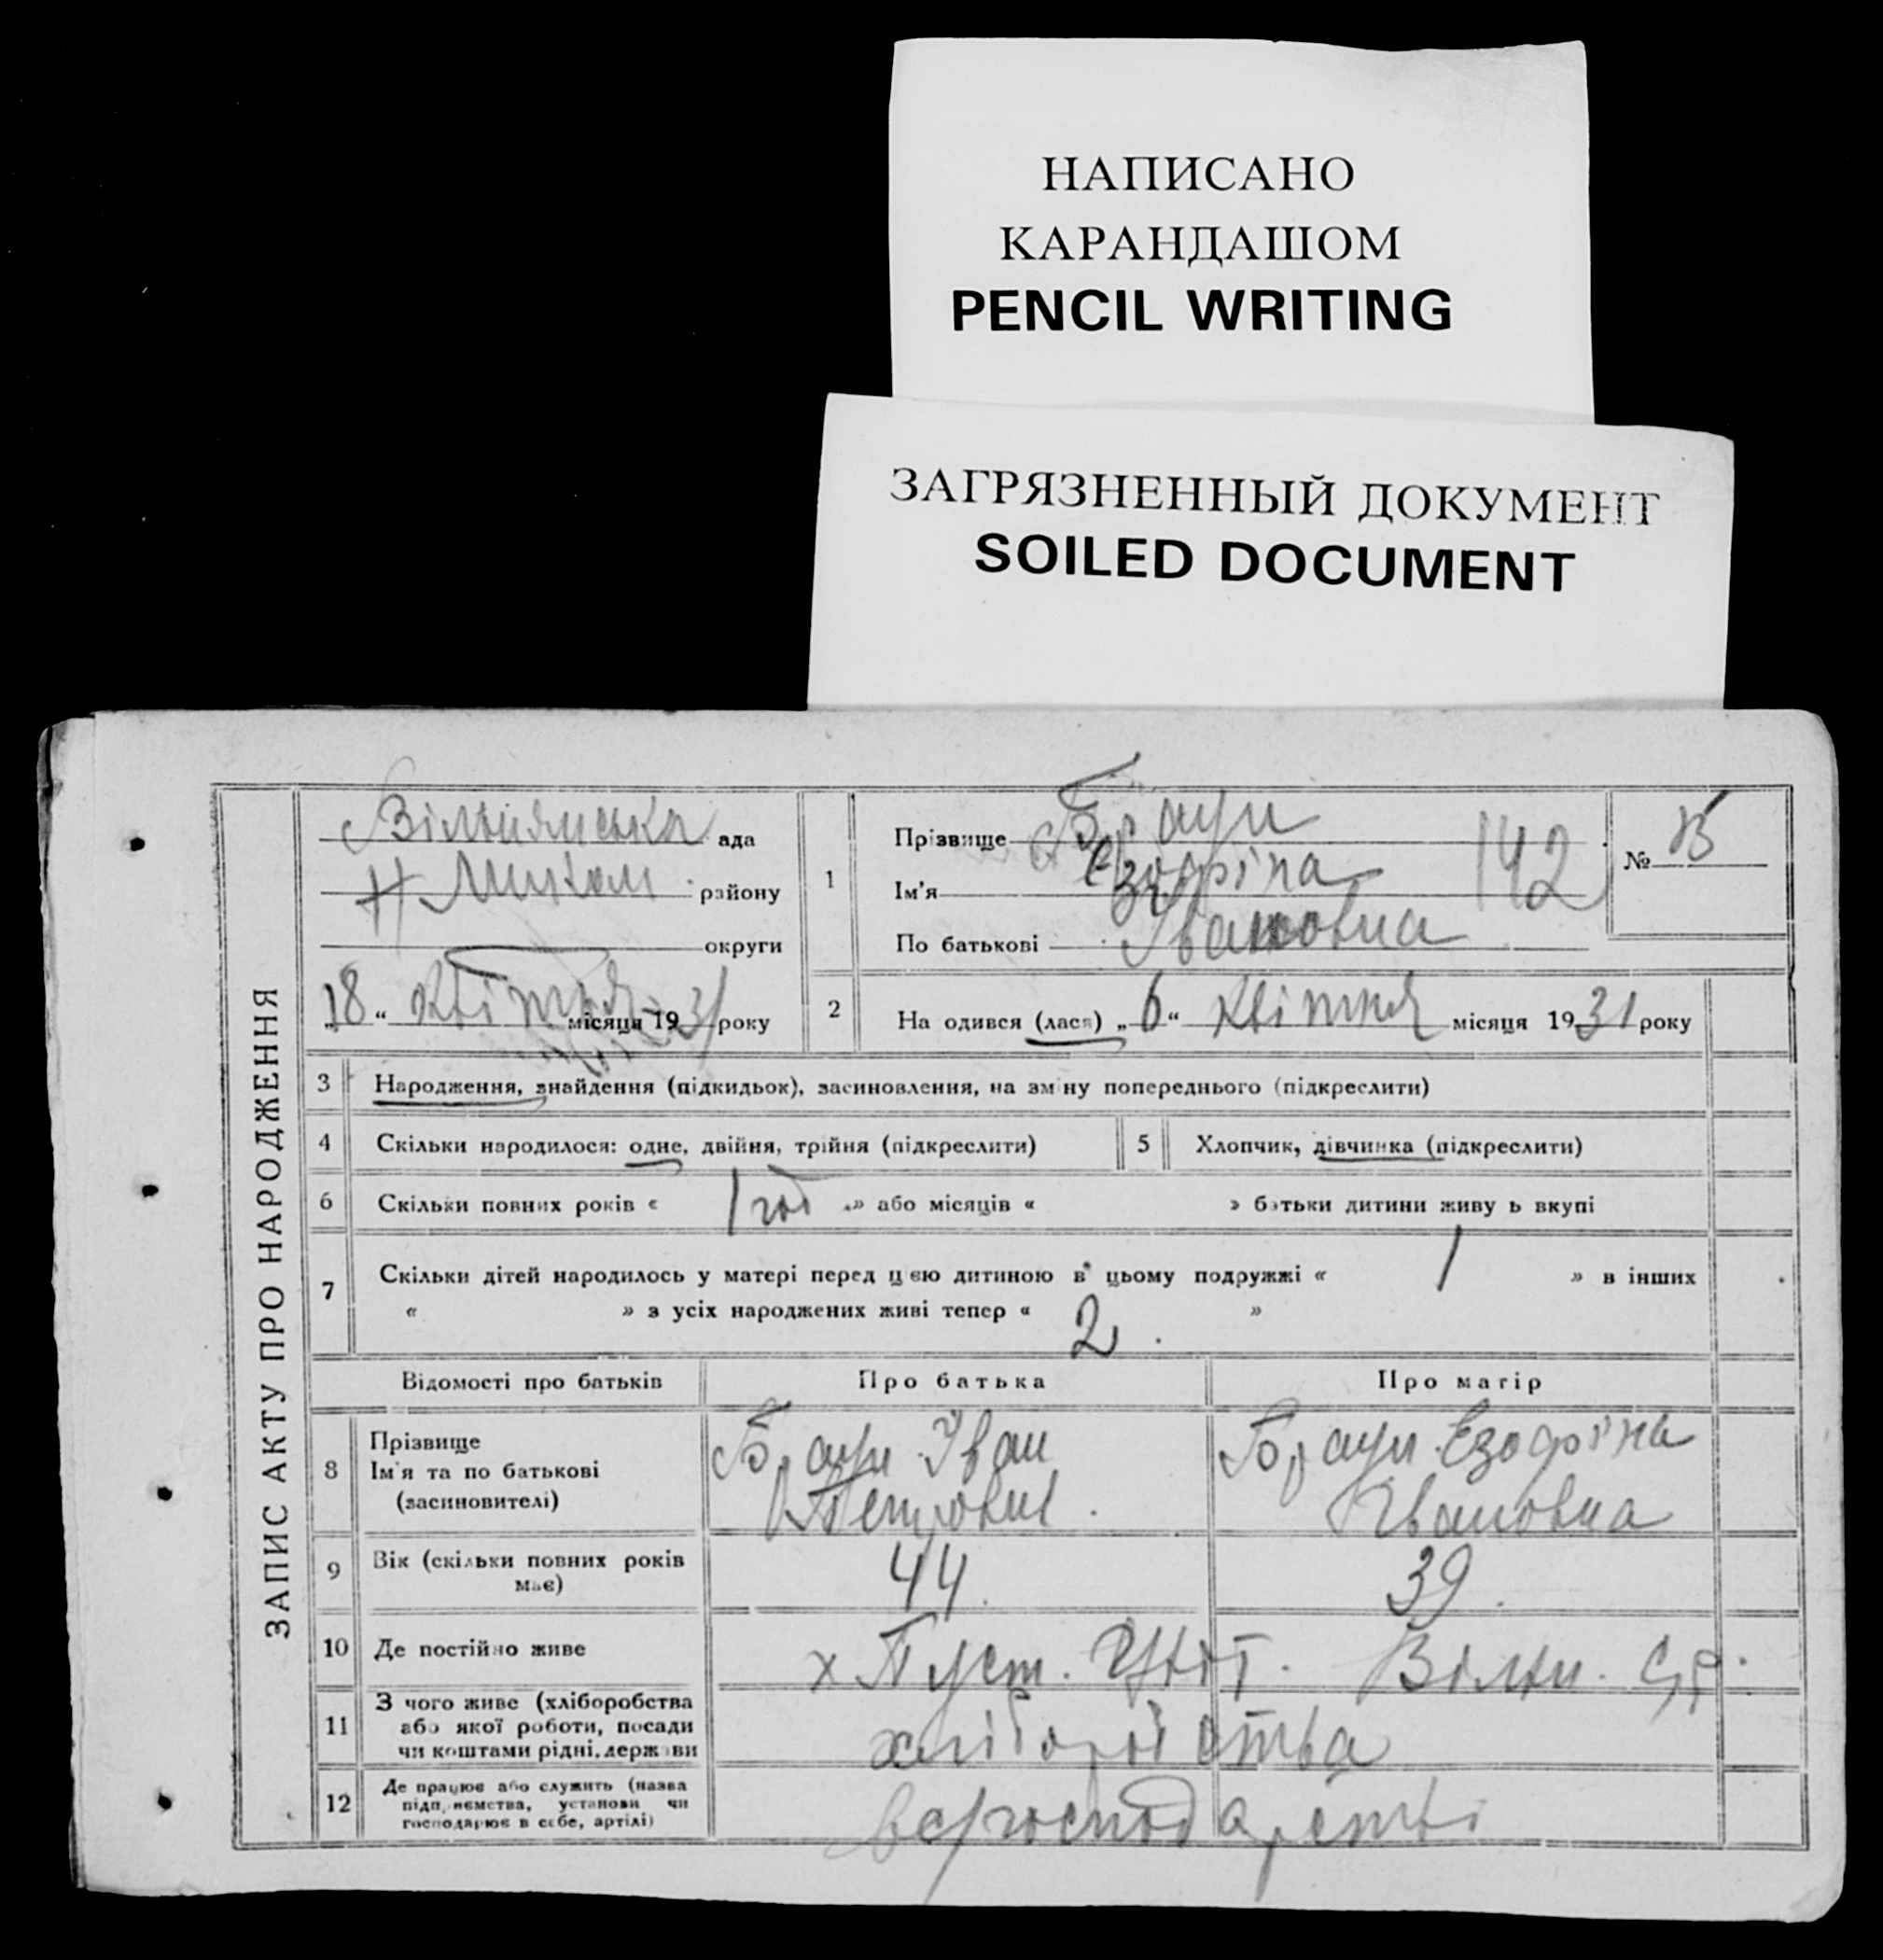 НАПИСАНО
КАРАНДАШОМ
PENCIL WRITING
ЗАГРЯЗНЕННЫЙ ДОКУМЕНТ
SOILED DOCUMENT
ЗАПИС АКТУ ПРО НАРОДЖЕННЯ
ада
району
округи
„18“ квітня місяця 1931 року
1
Прізвище Браун
Ім'я Єзофіна
По батькові Івановна
142
№
2 На одився (лася) „6“ квітня місяця 1931 року
3 Народження, знайдення (підкидьок), засиновлення, на зміну попереднього (підкреслити)
4 Скільки народилося: одне, двійня, трійня (підкреслити)
5 Хлопчик, дівчинка (підкреслити)
6 Скільки повних років « 1 год » або місяців « » батьки дитини живу ь вкупі
7 Скільки дітей народилось у матері перед цією дитиною в цьому подружжі « 1 » в інших
« » з усіх народжених живі тепер « 2 »
Відомості про батьків Про батька Про матір
8 Прізвище
Ім'я та по батькові
(засиновителі)
Браун Іван
Петрович
Браун Єзофіна
Івановна
9 Вік (скільки повних років
має)
44 39
10 Де постійно живе х Пуст. Вільн. с/р.
11 З чого живе (хліборобства
або якої роботи, посади
чи коштами рідні, держ ви
хліборобства
12 Де працює або служить (назва
підп иємства, установи чи
господарює в себе, артілі)
в с/господарстві